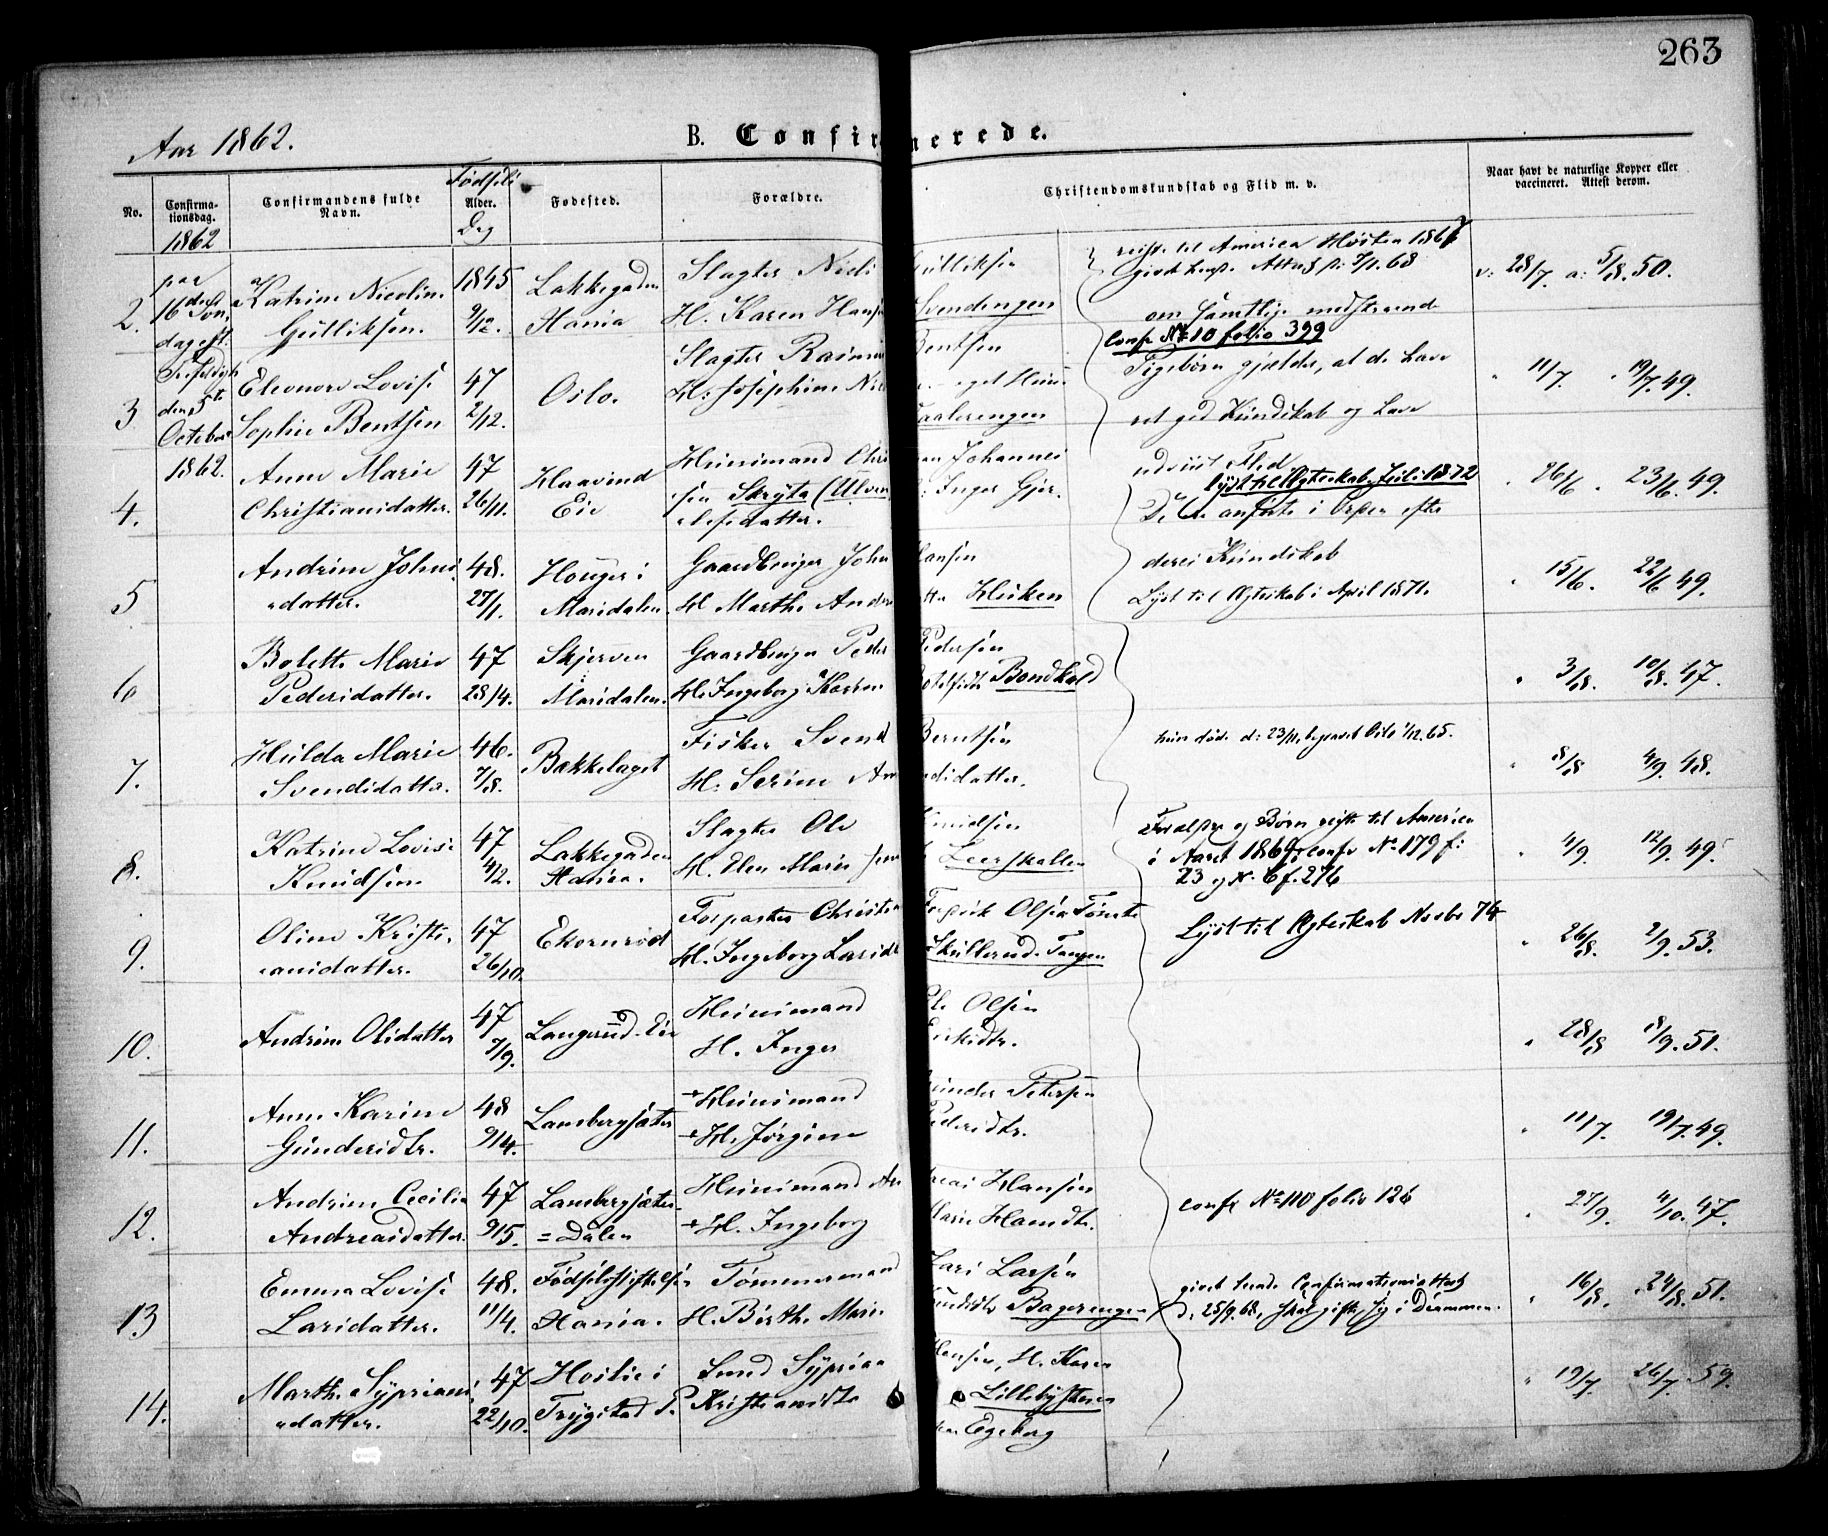 263
Aar 1862.
B. Confir merede.
No.
Confirma-
tionsdag.
1862
Confirmandens fulde
Navn.
Fødsels
Alder.
Dag
Fødested.
Forældre.
Christendomskundskab og Flid m. v.
Naar havt de naturlige Kopper eller
vaccineret. Attest derom.
paa
16de Søn-
dag eft.
den 5te
October
1862.
2.
Katrine Nicolin.
Gulliksen.
1845
9/12.
Lakkegaden
Hania
Slagter Nicli Gulliksen
H. Karen Hans Svendengen
reiste til America Høsten 1867
givet hend. Attest d: 7/1. 68
v: 28/7 a: 5/8. 50.
om samtlige
confr No 10 folio 399
3
Eleonore Lovise
Sophie Bentsen
47
2/12.
Oslo.
Slagter Rasmus Bentsen
H: Josephine Nil
Vaalerengen
Pigebørn gjælder, at de have
god Kundskab og have
11/7. 19/7. 49.
4.
Anne Marie
Christiansdatter.
47
26/11.
Haavind
Eie
Huusmand Chri Johannes
sen Skryta (Ulven : Inger Gjer.
datter.
udviist Flid
lyst til Ægteskab Juli 1872
De anførte i Orden efter
26/6 23/6. 49.
5
Andrine Johns
datter.
48.
27/1.
Houger i
Maridalen.
Gaardbruger John Hansen
H. Marthe Ander Kluken
deres Kundskab
Lyst til Ægteskab i April 1871.
15/6. 22/6 49.
6
Bolette Marie
Pedersdatter.
47
28/4.
Skjerven
Maridalen.
Gaardbruger Peder Pedersen
H. Ingeborg Karine Bondkald
3/8. 10/8. 47.
7.
Hulda Marie
Svendsdatter.
46.
7/8.
Bækkelaget
Fisker Svend Berntsen
H. Serine An didatter.
hun døde d: 23/11, begravet Oslo 1/12. 65.
8/8 4/9. 48.
8.
Katrine Lovise
Knudsen
47
4/2.
Lakkegaden
Hania.
Slagter Ole Knudsen
H. Elen Marie Jen Leerskallen
Forældre og Børn reiste til America
i Aaret 1869, confr No 179 f:
23 og N. 6 f. 276
4/9. 12/9. 49.
9.
Oline Kristi-
ansdatter.
47
26/10.
Ekornrød
Forpagter Christian Fredrik Olsen Tomte
H. Ingeborg Larsdt Skullerud. Tangen
Lyst til Ægteskab Novbr 74
26/8. 2/9. 53.
10.
Andrine Olsdatter
47
7/9.
Langerud. Eie
Huusmand Ole Olsen
H. Inger Eriksdtr.
28/8 8/9. 51.
11.
Anne Karine
Gundersdtr.
48
9/4.
Lambergsæter
Huusmand Gunder Petersen
H. Jørgine Pedersdtr.
11/7. 19/7. 49.
12.
Andrine Cecilie
Andreasdatter.
47
9/5.
Lambergsæter-
= Dalen
Huusmand Andreas Hansen
H. Ingeborg Marie Hansdtr.
confr No 110 folio 126
27/9. 4/10. 47.
13
Emma Lovise
Larsdatter.
48.
11/4.
Fødselsstiftelsen
Hania.
Tømmermand Lars Larsen
H. Birthe Marie Knudsdtr Bageringen
givet hende Confirmations Attest
d. 25/9. 68, skal gifte sig i Drammen.
16/8. 24/8. 51.
14.
Marthe Syprians
datter.
47
22/10.
Hoslie i
Trygstad P.
Smed Syprian Hansen, H. Karen
Kristiansdtr Lillebysteren
Egeberg
19/7. 26/7. 59.